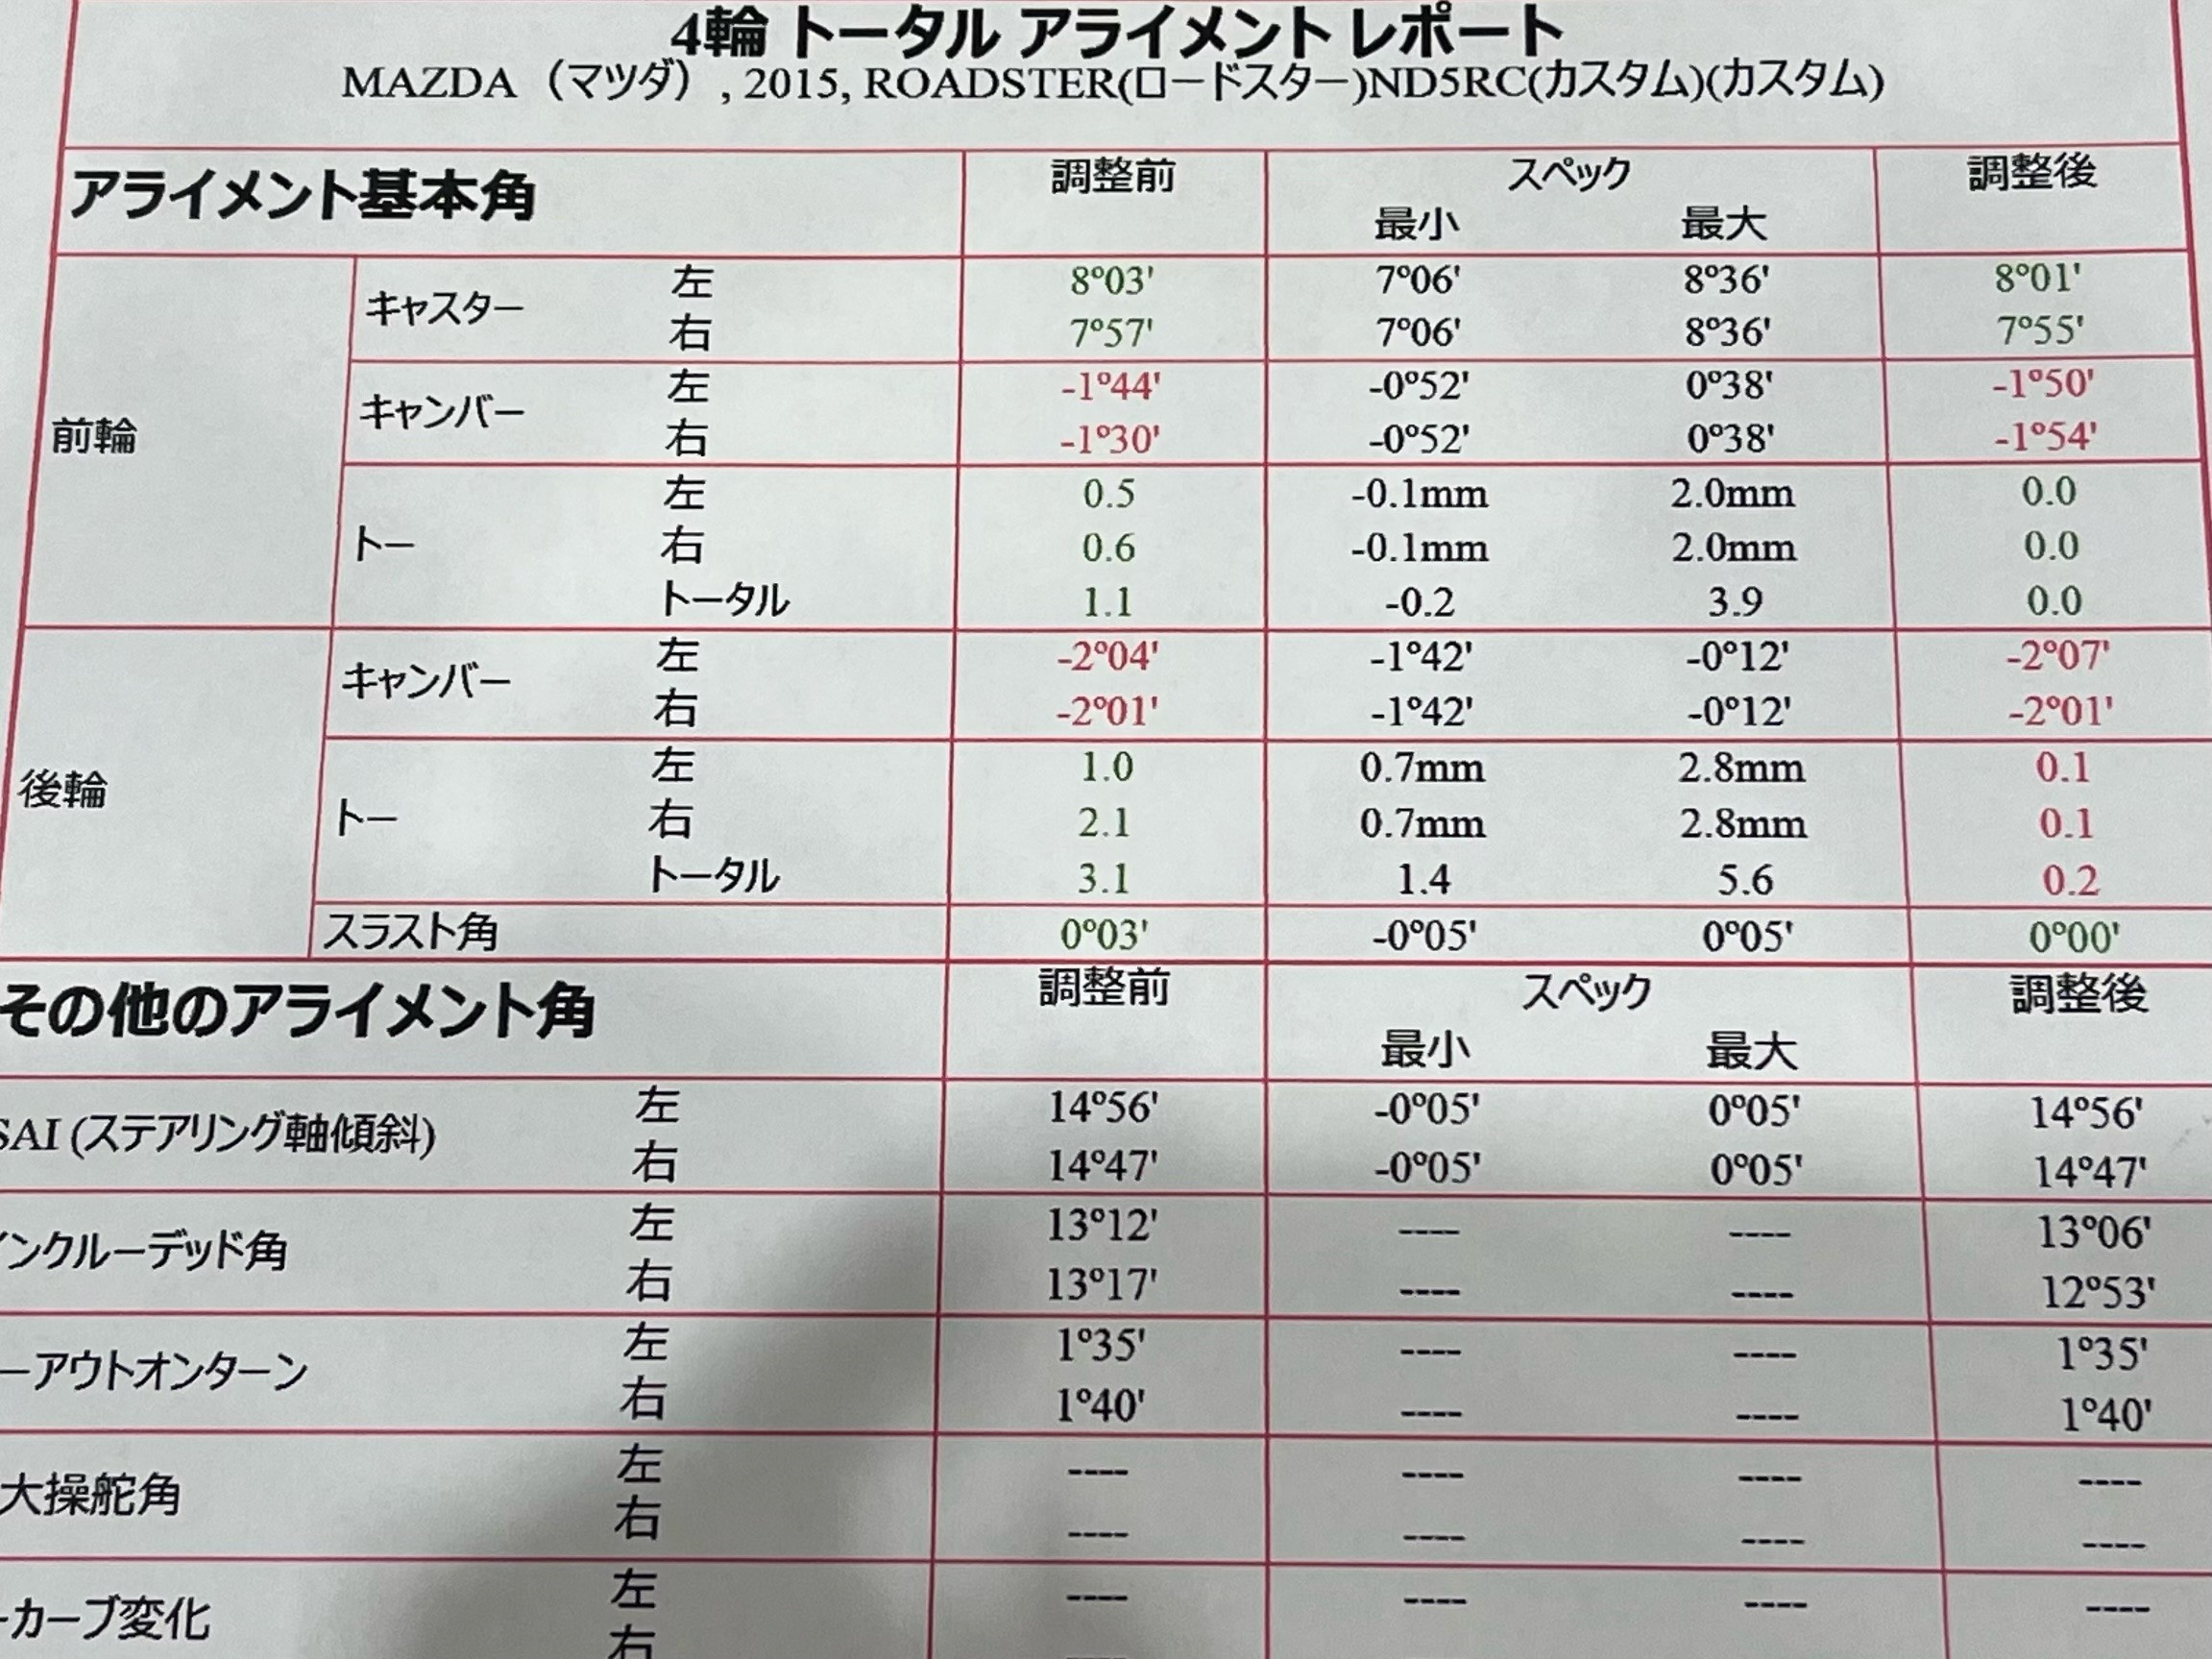 4輪 トータル アライメント レポート
MAZDA（マツダ）, 2015, ROADSTER(ロードスター)ND5RC(カスタム)(カスタム)
アライメント基本角 調整前 スペック 調整後
最小 最大
前輪
キャスター 左 8º03' 7º06' 8º36' 8º01'
右 7º57' 7º06' 8º36' 7º55'
キャンバー 左 -1º44' -0º52' 0º38' -1º50'
右 -1º30' -0º52' 0º38' -1º54'
トー 左 0.5 -0.1mm 2.0mm 0.0
右 0.6 -0.1mm 2.0mm 0.0
トータル 1.1 -0.2 3.9 0.0
後輪
キャンバー 左 -2º04' -1º42' -0º12' -2º07'
右 -2º01' -1º42' -0º12' -2º01'
トー 左 1.0 0.7mm 2.8mm 0.1
右 2.1 0.7mm 2.8mm 0.1
トータル 3.1 1.4 5.6 0.2
スラスト角 0º03' -0º05' 0º05' 0º00'
その他のアライメント角 調整前 スペック 調整後
最小 最大
SAI (ステアリング軸傾斜) 左 14º56' -0º05' 0º05' 14º56'
右 14º47' -0º05' 0º05' 14º47'
インクルーデッド角 左 13º12' ---- ---- 13º06'
右 13º17' ---- ---- 12º53'
ーアウトオンターン 左 1º35' ---- ---- 1º35'
右 1º40' ---- ---- 1º40'
大操舵角 左 ---- ---- ---- ----
右 ---- ---- ---- ----
ーカーブ変化 左 ---- ---- ---- ----
右 ----